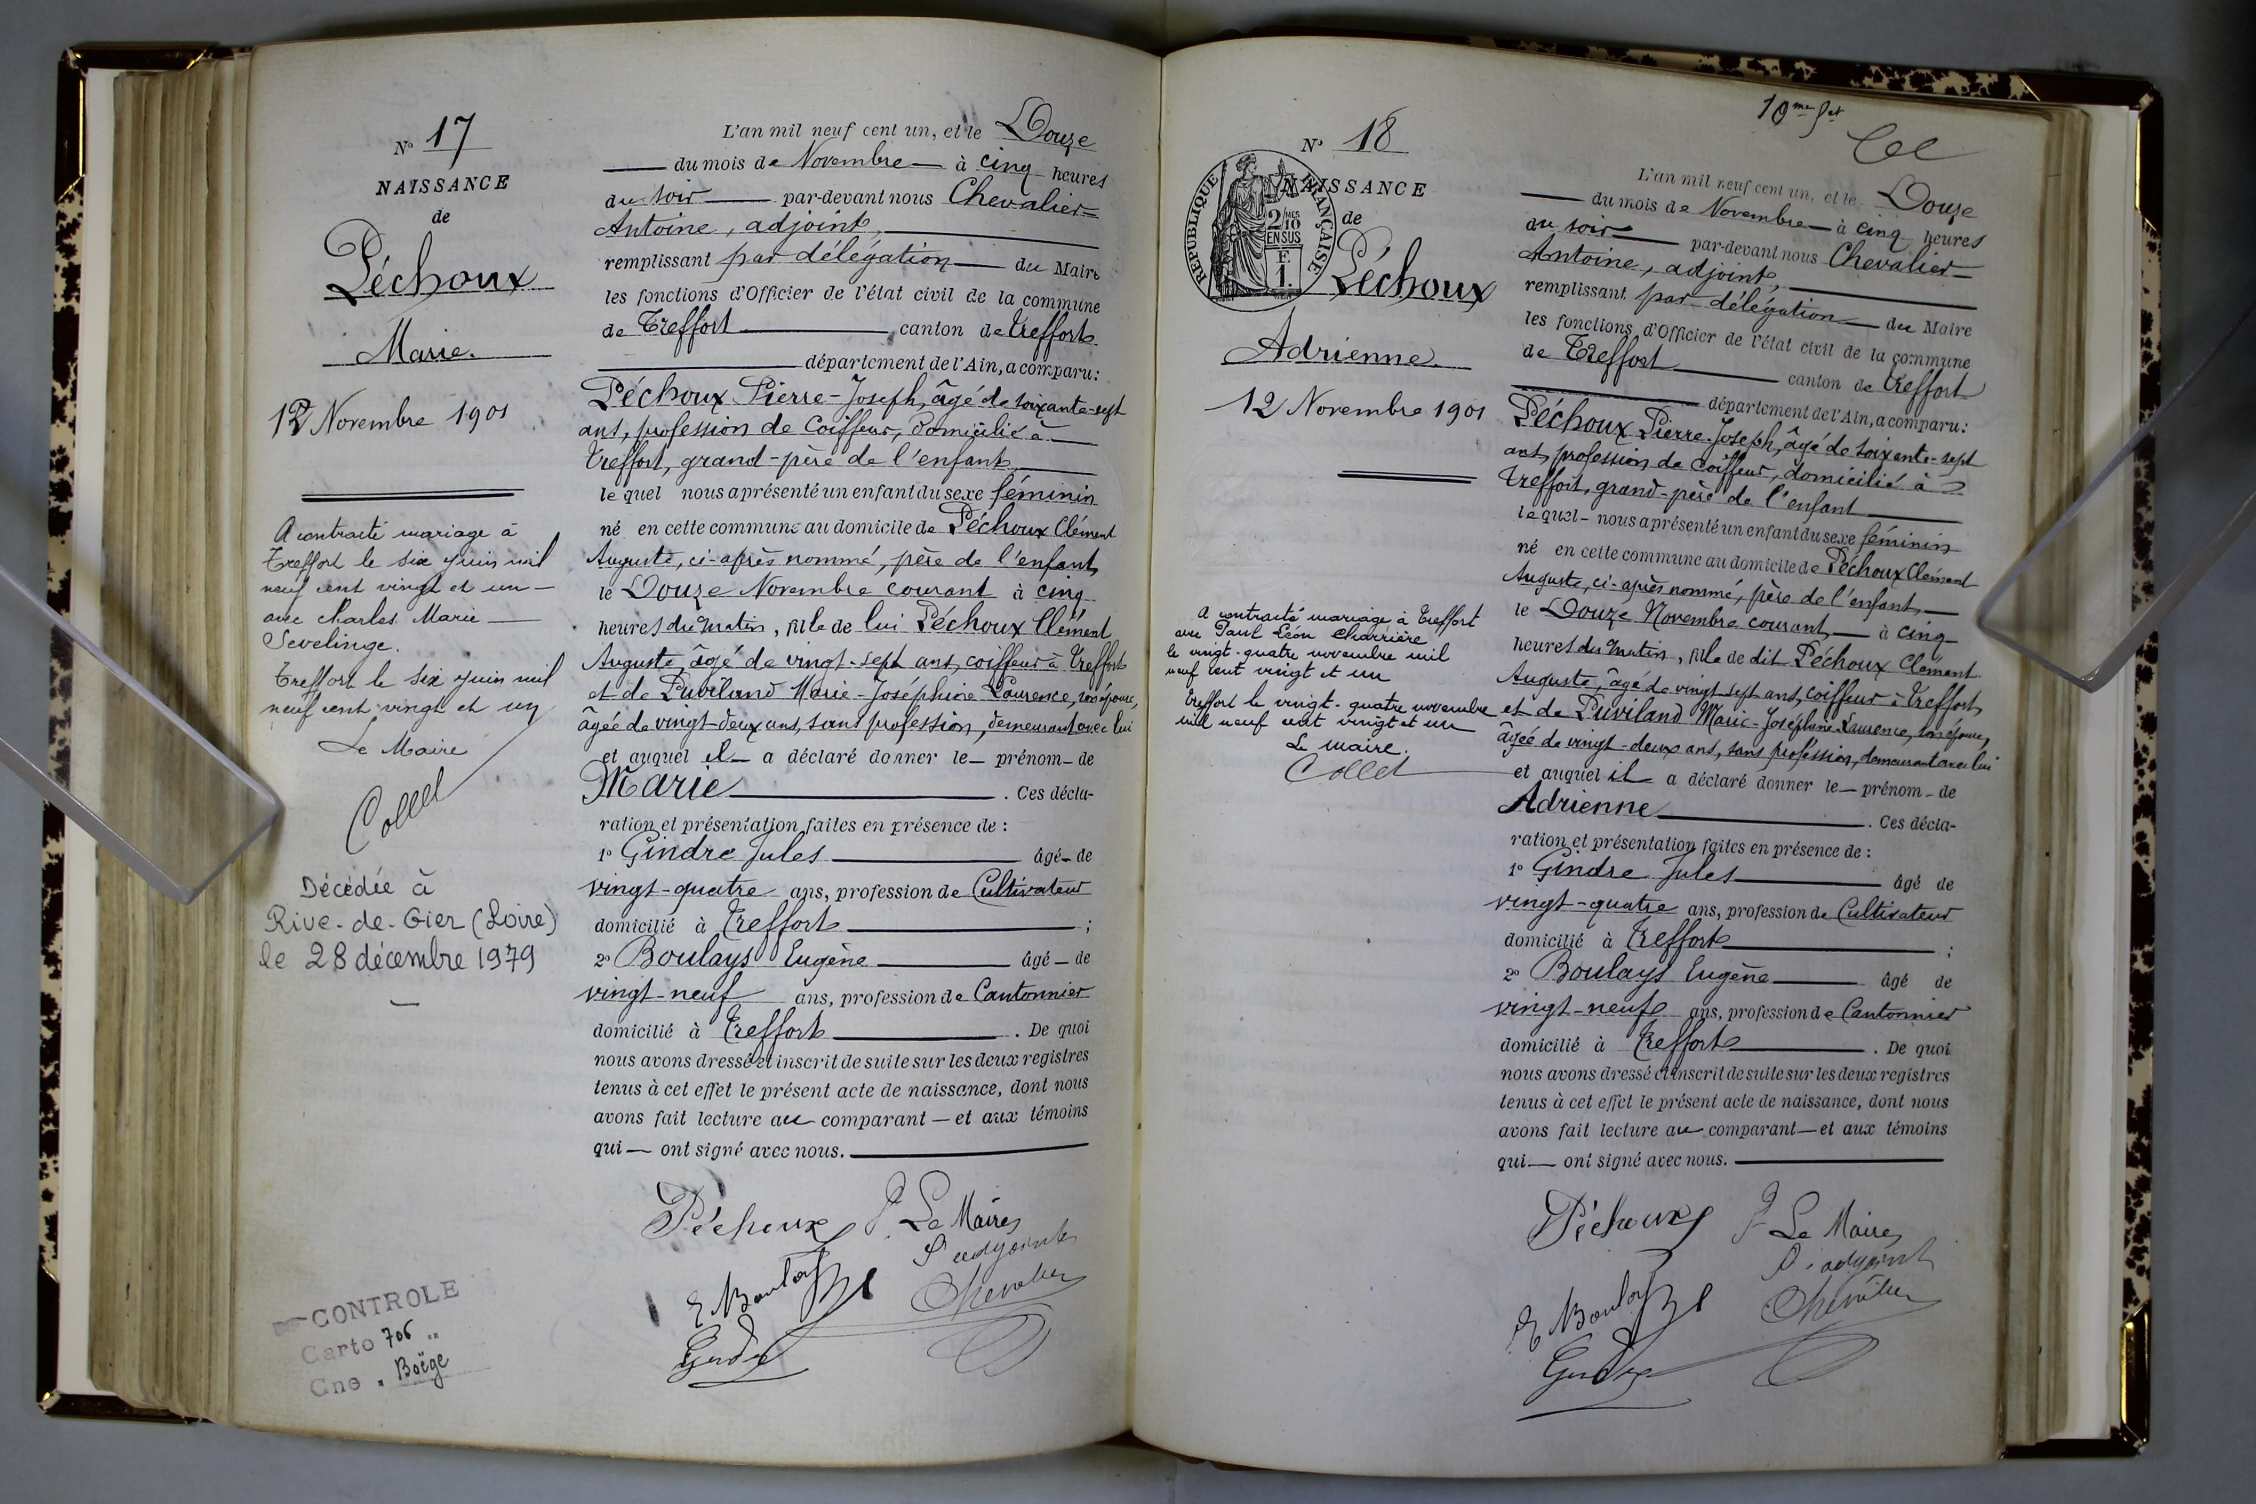 N° 17
NAISSANCE
de
Péchoux
Marie.
12 Novembre 1901
A contracté mariage à
Treffort le six Juin mil
neuf cent vingt et un —
avec Charles Marie —
Sevelinge.
Treffort le six Juin mil
neuf cent vingt et un
Le Maire
Collet
Décédée à
Rive-de-Gier (Loire)
le 28 décembre 1979
—
CONTROLE
Carto 706 "
Cne . Boëge
L'an mil neuf cent un, et le Douze
— du mois de Novembre — à cinq heures
du soir — par-devant nous Chevalier
Antoine, adjoint, —
remplissant par délégation — du Maire
les fonctions d'Officier de l'état civil de la commune
de Treffort — canton de Treffort
— département de l'Ain, a comparu:
Péchoux Pierre-Joseph, âgé de soixante-sept
ans, profession de Coiffeur, domicilié à —
Treffort, grand-père de l'enfant —
lequel nous a présenté un enfant du sexe féminin
né en cette commune au domicile de Péchoux Clément
Auguste, ci-après nommé, père de l'enfant,
le Douze Novembre courant à cinq
heures du matin, fille de lui Péchoux Clément
Auguste, âgé de vingt-sept ans, coiffeur à Treffort
et de Puviland Marie-Joséphine Laurence, son épouse,
âgée de vingt-deux ans, sans profession, demeurant avec lui
et auquel il — a déclaré donner le — prénom — de
Marie — . Ces décla-
ration et présentation faites en présence de :
1° Gindre Jules — âgé — de
vingt-quatre ans, profession de Cultivateur
domicilié à Treffort — ;
2° Boulays Eugène — âgé — de
vingt-neuf ans, profession de Cantonnier
domicilié à Treffort — . De quoi
nous avons dressé et inscrit de suite sur les deux registres
tenus à cet effet le présent acte de naissance, dont nous
avons fait lecture au comparant — et aux témoins
qui — ont signé avec nous. —
Péchoux P. Le Maire,
L'adjoint
E Boulays
Chevalier
Gindre
10me Fet
N° 18
NAISSANCE
de
RÉPUBLIQUE FRANÇAISE
2/10 MES
EN SUS
F.
1.
Péchoux
Adrienne.
12 Novembre 1901
A contracté mariage à Treffort
avec Paul Léon Charrière
le vingt-quatre novembre mil
neuf cent vingt et un
Treffort le vingt-quatre novembre
mil neuf cent vingt et un
Le maire.
Collet
L'an mil neuf cent un, et le Douze
— du mois de Novembre — à cinq heures
du soir — par-devant nous Chevalier —
Antoine, adjoint, —
remplissant par délégation — du Maire
les fonctions d'Officier de l'état civil de la commune
de Treffort — canton de Treffort
— département de l'Ain, a comparu:
Péchoux Pierre-Joseph, âgé de soixante-sept
ans, profession de coiffeur, domicilié à
Treffort, grand-père de l'enfant —
lequel — nous a présenté un enfant du sexe féminin
né en cette commune au domicile de Péchoux Clément
Auguste, ci-après nommé, père de l'enfant, —
le Douze Novembre courant — à cinq
heures du matin, fille de dit Péchoux Clément
Auguste, âgé de vingt sept ans, coiffeur à Treffort,
et de Puviland Marie-Joséphine-Laurence, son épouse,
âgée de vingt-deux ans, sans profession, demeurant avec lui
et auquel il a déclaré donner le — prénom — de
Adrienne — . Ces décla-
ration et présentation faites en présence de :
1° Gindre Jules — âgé de
vingt-quatre ans, profession de Cultivateur
domicilié à Treffort — ;
2° Boulays Eugène — âgé de
vingt-neuf ans, profession de Cantonnier
domicilié à Treffort — . De quoi
nous avons dressé et inscrit de suite sur les deux registres
tenus à cet effet le présent acte de naissance, dont nous
avons fait lecture au comparant — et aux témoins
qui — ont signé avec nous. —
Péchoux P. Le Maire,
L'adjoint
E Boulays
Chevalier
Gindre